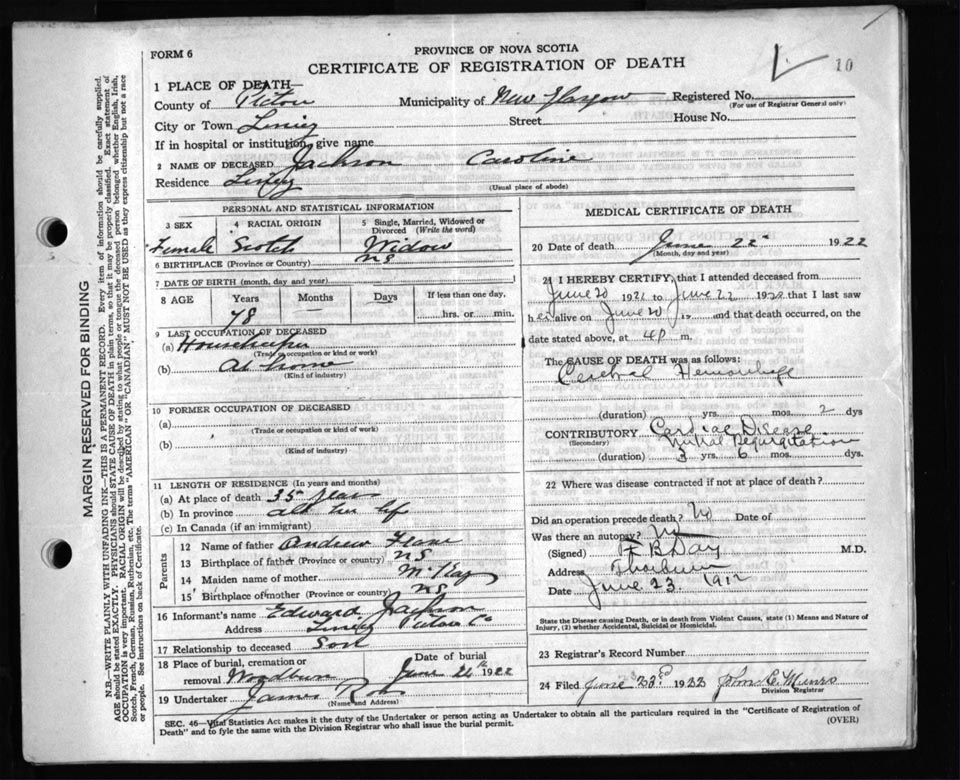 FORM 6
PROVINCE OF NOVA SCOTIA
CERTIFICATE OF REGISTRATION OF DEATH
10
1 PLACE OF DEATH—
County of Pictou Municipality of New Glasgow Registered No.
(For use of Registrar General only)
City or Town Street House No.
If in hospital or institution, give name
2 NAME OF DECEASED Jackson Caroline
Residence
(Usual place of abode)
PERSONAL AND STATISTICAL INFORMATION
3 SEX 4 RACIAL ORIGIN 5 Single, Married, Widowed or Divorced (Write the word)
Female Scotch Widow
6 BIRTHPLACE (Province or Country) NS
7 DATE OF BIRTH (month, day and year)
8 AGE Years Months Days If less than one day,
78 hrs. or min.
9 LAST OCCUPATION OF DECEASED
(a) Housekeeper
(Trade or occupation or kind or work)
(b) At home
(Kind of industry)
10 FORMER OCCUPATION OF DECEASED
(a)
(Trade or occupation or kind of work)
(b)
(Kind of industry)
11 LENGTH OF RESIDENCE (In years and months)
(a) At place of death 35 years
(b) In province all her life
(c) In Canada (if an immigrant)
Parents
12 Name of father Andrew
13 Birthplace of father (Province or country) NS
14 Maiden name of mother McKay
15 Birthplace of mother (Province or country) NS
16 Informant's name Edward Jackson
Address Pictou Co
17 Relationship to deceased Son
18 Place of burial, cremation or Date of burial
removal Woodburn June 24th 1922
19 Undertaker James
(Name and Address)
MEDICAL CERTIFICATE OF DEATH
20 Date of death June 22 1922
(Month, day and year)
21 I HEREBY CERTIFY, that I attended deceased from
June 20 1921 to June 22 1922 that I last saw
her alive on June 20 19 and that death occurred, on the
date stated above, at 4P m.
The CAUSE OF DEATH was as follows:
Cerebral Hemorrhage
(duration) yrs. mos. 2 dys
CONTRIBUTORY Cardiac Disease
(Secondary) Mitral Regurgitation
(duration) 3 yrs 6 mos. dys.
22 Where was disease contracted if not at place of death?
Did an operation precede death? No Date of
Was there an autopsy? No
(Signed) F B Day M.D.
Address Thorburn
Date June 23 1912
State the Disease causing Death, or in death from Violent Causes, state (1) Means and Nature of Injury, (2) whether Accidental, Suicidal or Homicidal.
23 Registrar's Record Number
24 Filed June 23rd 1922 John C. Munro
Division Registrar
SEC. 46—Vital Statistics Act makes it the duty of the Undertaker or person acting as Undertaker to obtain all the particulars required in the "Certificate of Registration of
Death" and to fyle the same with the Division Registrar who shall issue the burial permit. (OVER)
MARGIN RESERVED FOR BINDING
N.B.—WRITE PLAINLY WITH UNFADING INK—THIS IS A PERMANENT RECORD. Every item of information should be carefully supplied.
AGE should be stated EXACTLY. PHYSICIANS should STATE CAUSE OF DEATH in plain terms, so that it may be properly classified. Exact statement of
OCCUPATION is very important. RACIAL ORIGIN will be described by stating to what people or tongue the deceased person belonged whether English, Irish,
Scotch, French, German, Russian, Ruthenian, etc. The terms "AMERICAN" OR "CANADIAN" MUST NOT BE USED as they express citizenship but not a race
or people. See instructions on back of Certificate.